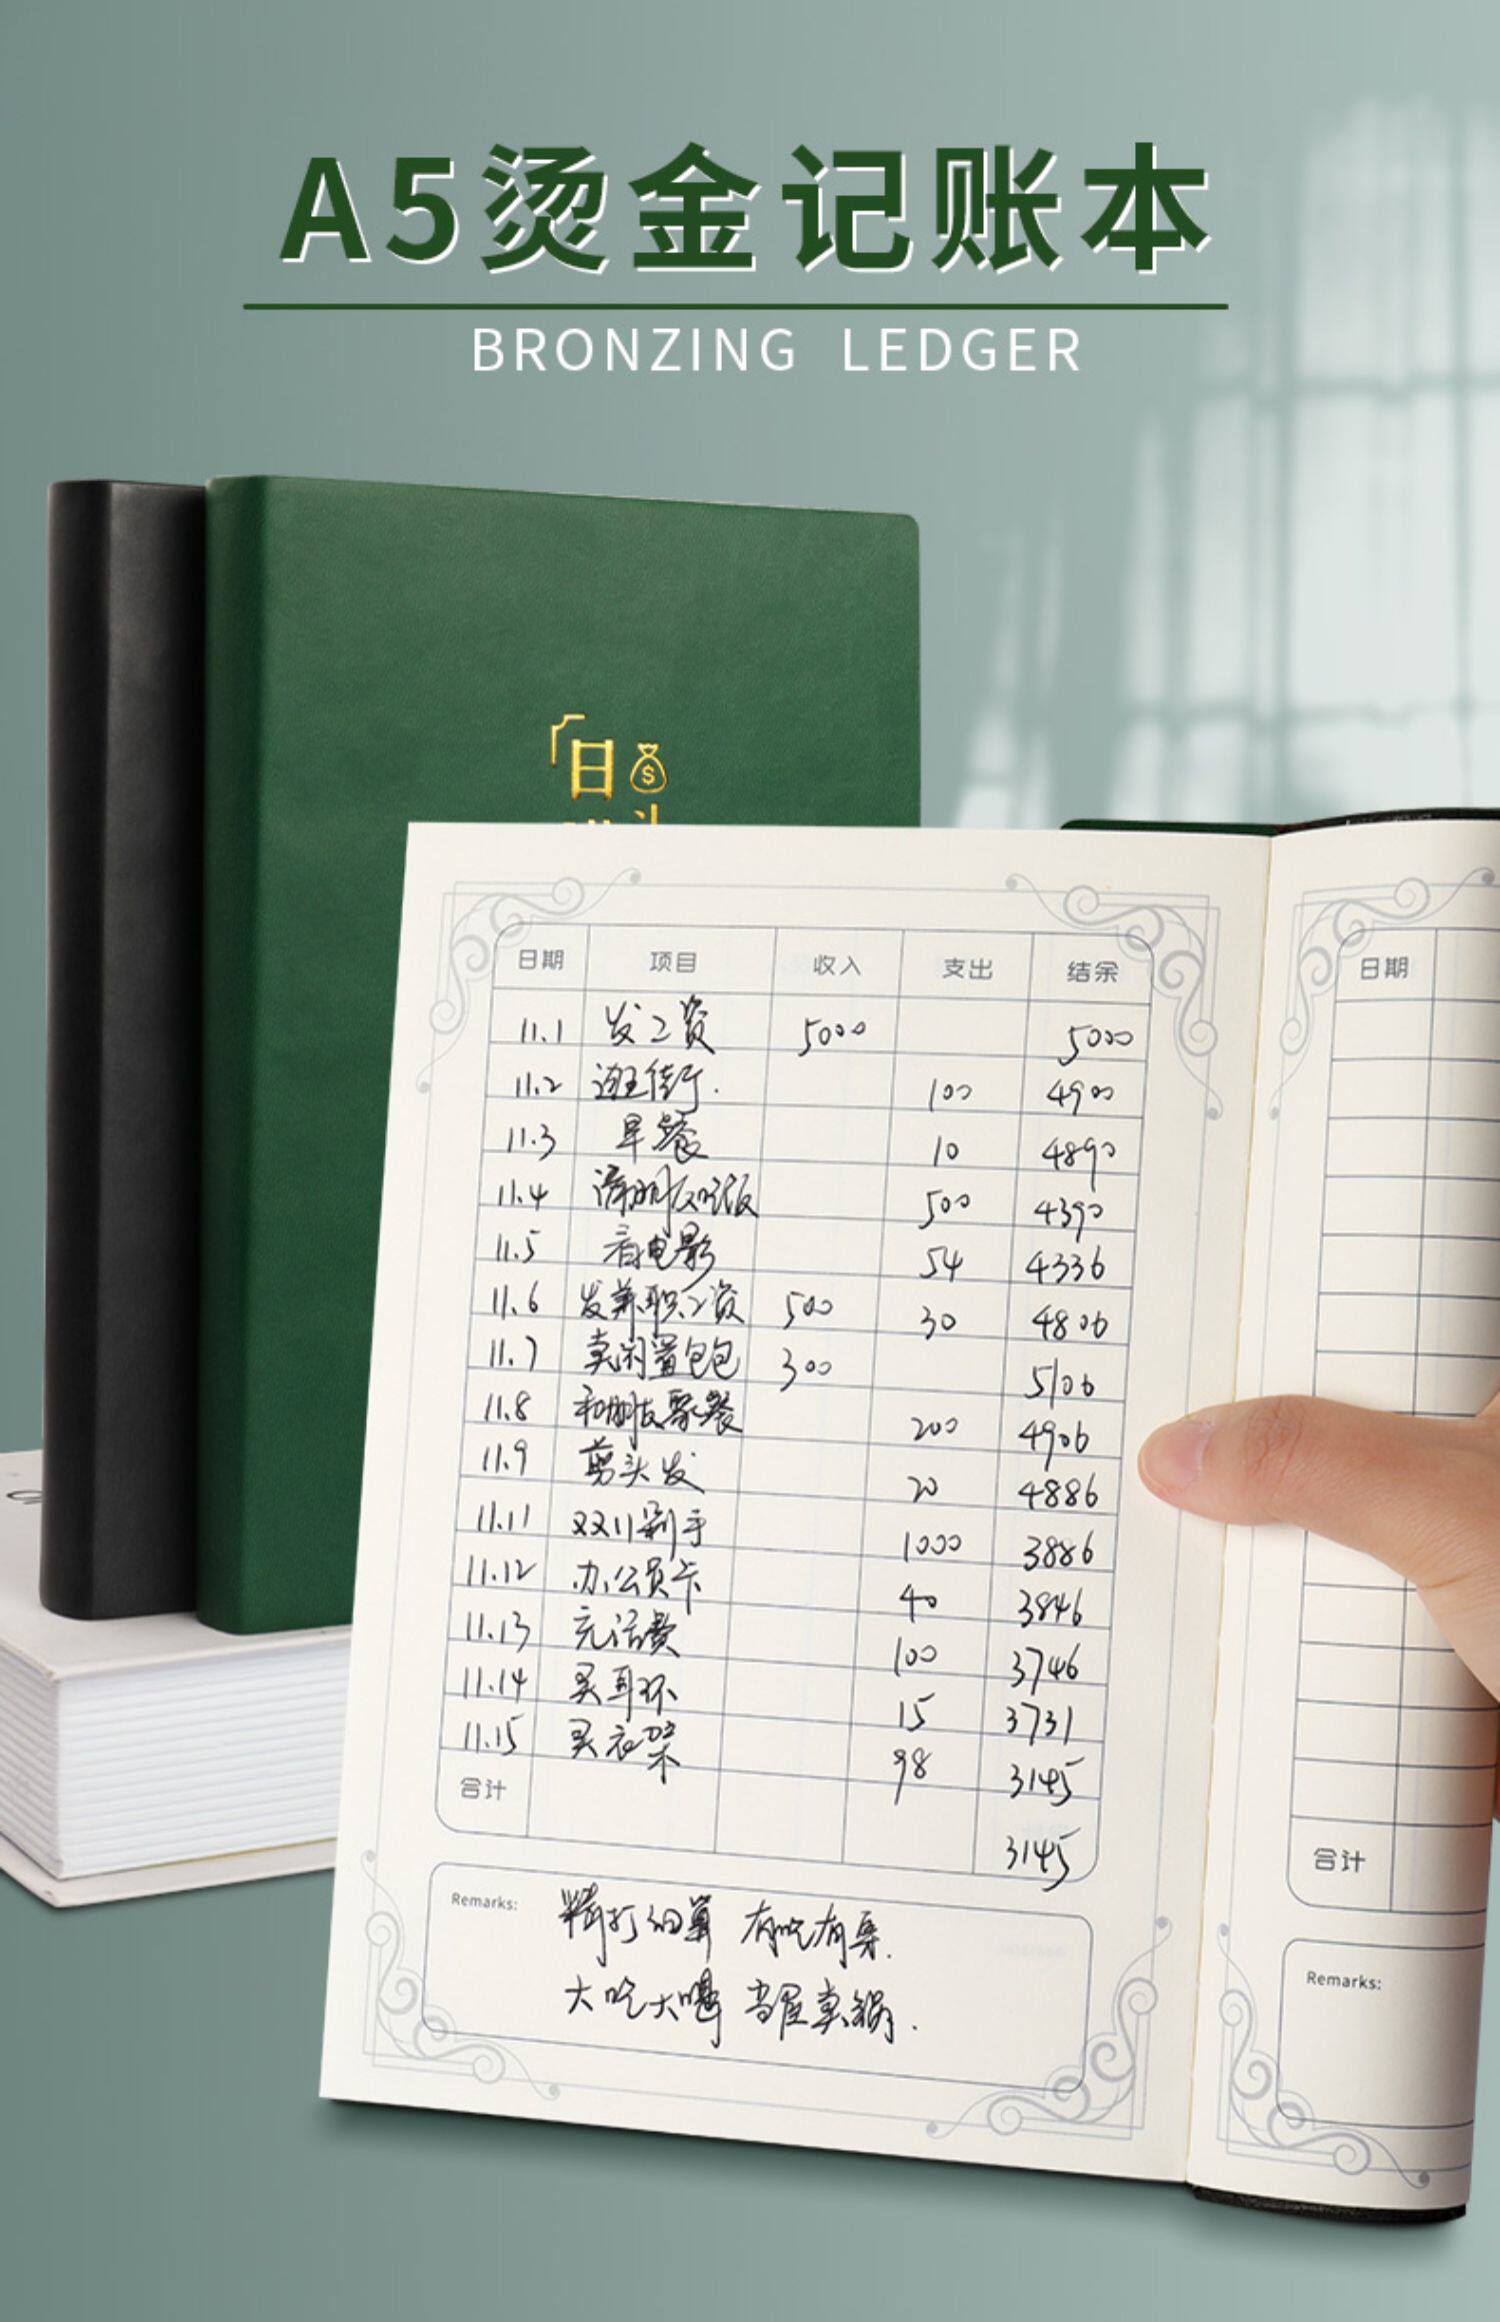 A5烫金记账本
BRONZING LEDGER
日
日期 项目 收入 支出 结余
11.1 发工资 5000 5000
11.2 逛街. 100 4900
11.3 早餐 10 4890
11.4 请朋友吃饭 500 4390
11.5 看电影 54 4336
11.6 发兼职工资 500 30 4806
11.7 卖闲置包包 300 5106
11.8 和朋友聚餐 200 4906
11.9 剪头发 20 4886
11.11 双11剁手 1000 3886
11.12 办公员卡 40 3846
11.13 充话费 100 3746
11.14 买耳环 15 3731
11.15 买衣架 98 3145
合计 3145
Remarks: 精打细算 有吃有穿.
大吃大喝 当屋卖锅.
日期
合计
Remarks: